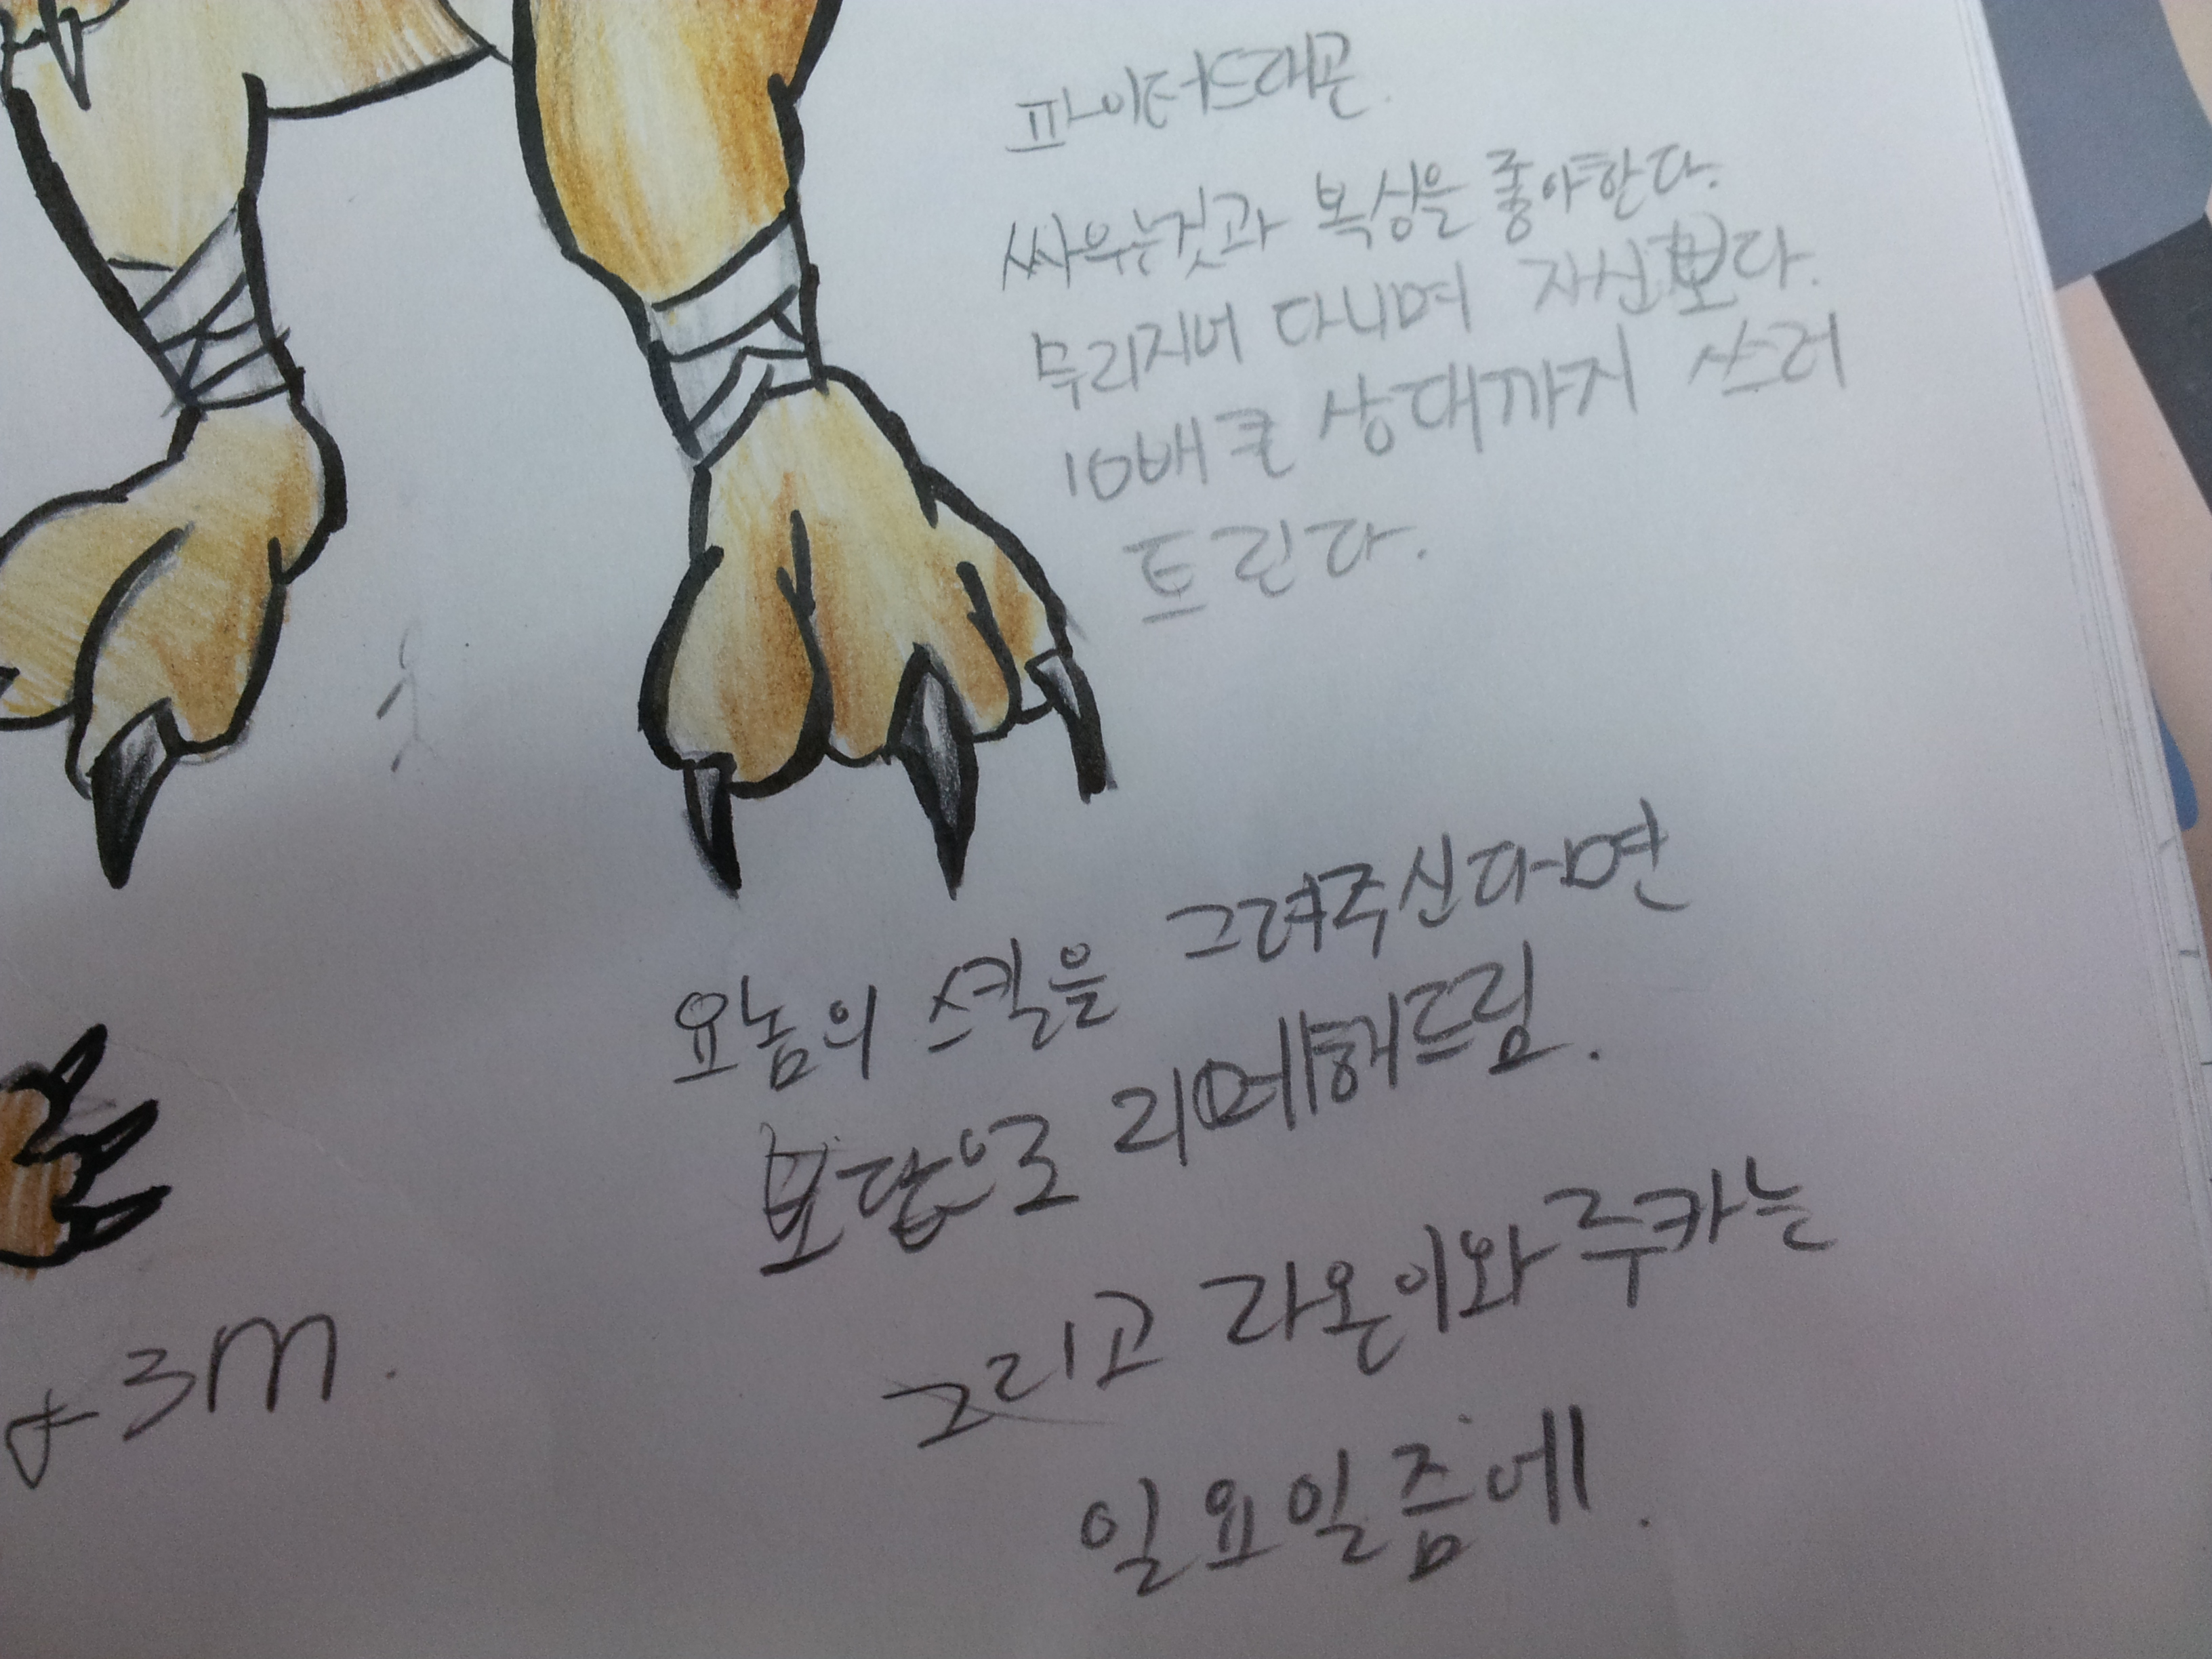 파이터드래곤.
싸우는것과 복싱을 좋아한다.
무리지어 다니며 자신보다.
10배큰 상대까지 쓰러
트린다.
요놈의 스킬을 그려주신다면
보답으로 리메해드림.
그리고 라온이와 주카는
일요일즘에.
3m.